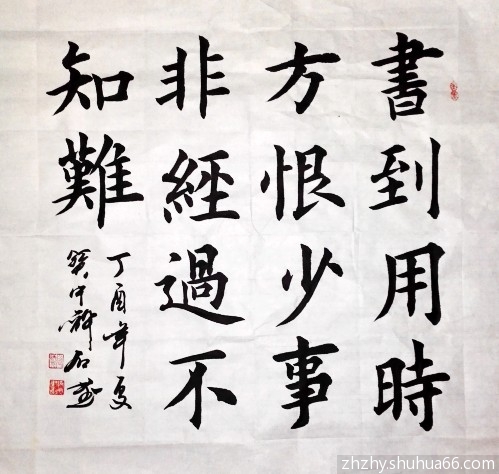 書到用時
方恨少事
非經過不
知難
丁酉年夏
zhzhyshuhua66.com